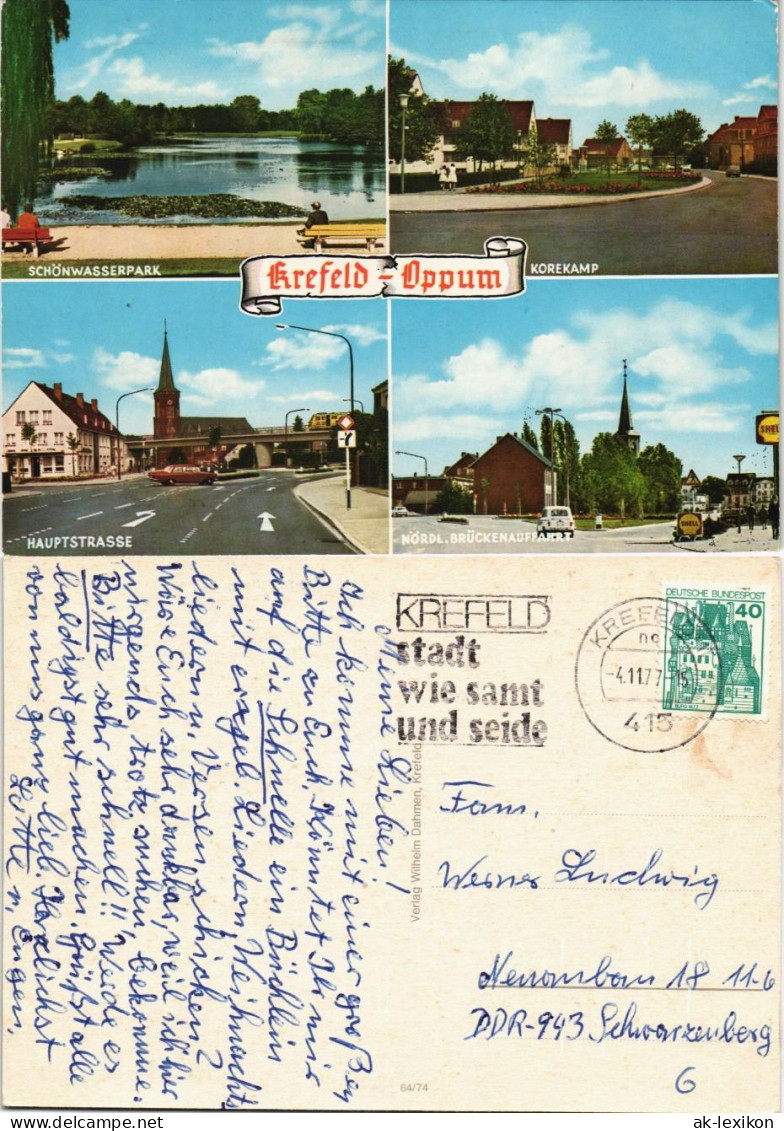 SCHÖNWASSERPARK
KOREKAMP
Krefeld - Oppum
HAUPTSTRASSE
NÖRDL. BRÜCKENAUFFAHRT
SHELL
SHELL
Meine Lieben!
Ich komme mit einer großen
Bitte zu Euch. Könntet Ihr mir
auf die Schnelle ein Büchlein
mit erzgeb. Liedern, Weihnachts
liedern u. Versen schicken?
Wäre Euch sehr dankbar, weil ich hier
nirgends trotz suchen, bekomme.
Bitte sehr schnell!! Werde es
baldigst gut machen. Grüßt alle
von uns ganz lieb. Herzlichst
Lotte u. Eugen.
KREFELD
stadt
wie samt
und seide
KREFELD
-4.11.77-15
415
DEUTSCHE BUNDESPOST
40
Verlag Wilhelm Dahmen, Krefeld
Fam.
Werner Ludwig
18 11-6
DDR-943 Schwarzenberg
6
64/74
ak-lexikon